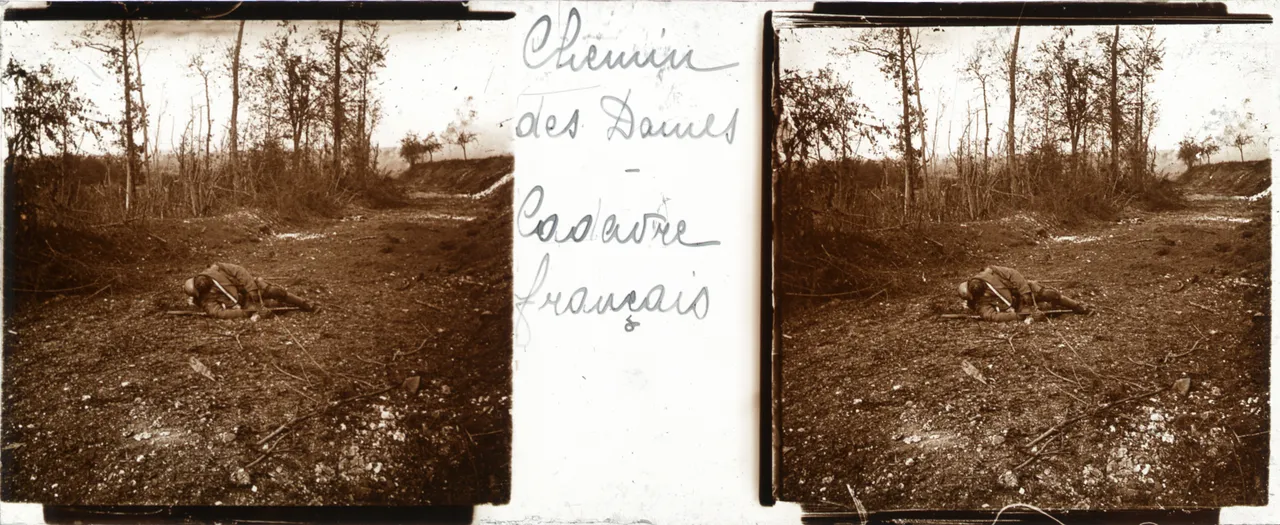 Chemin
des Dames
-
Cadavre
français